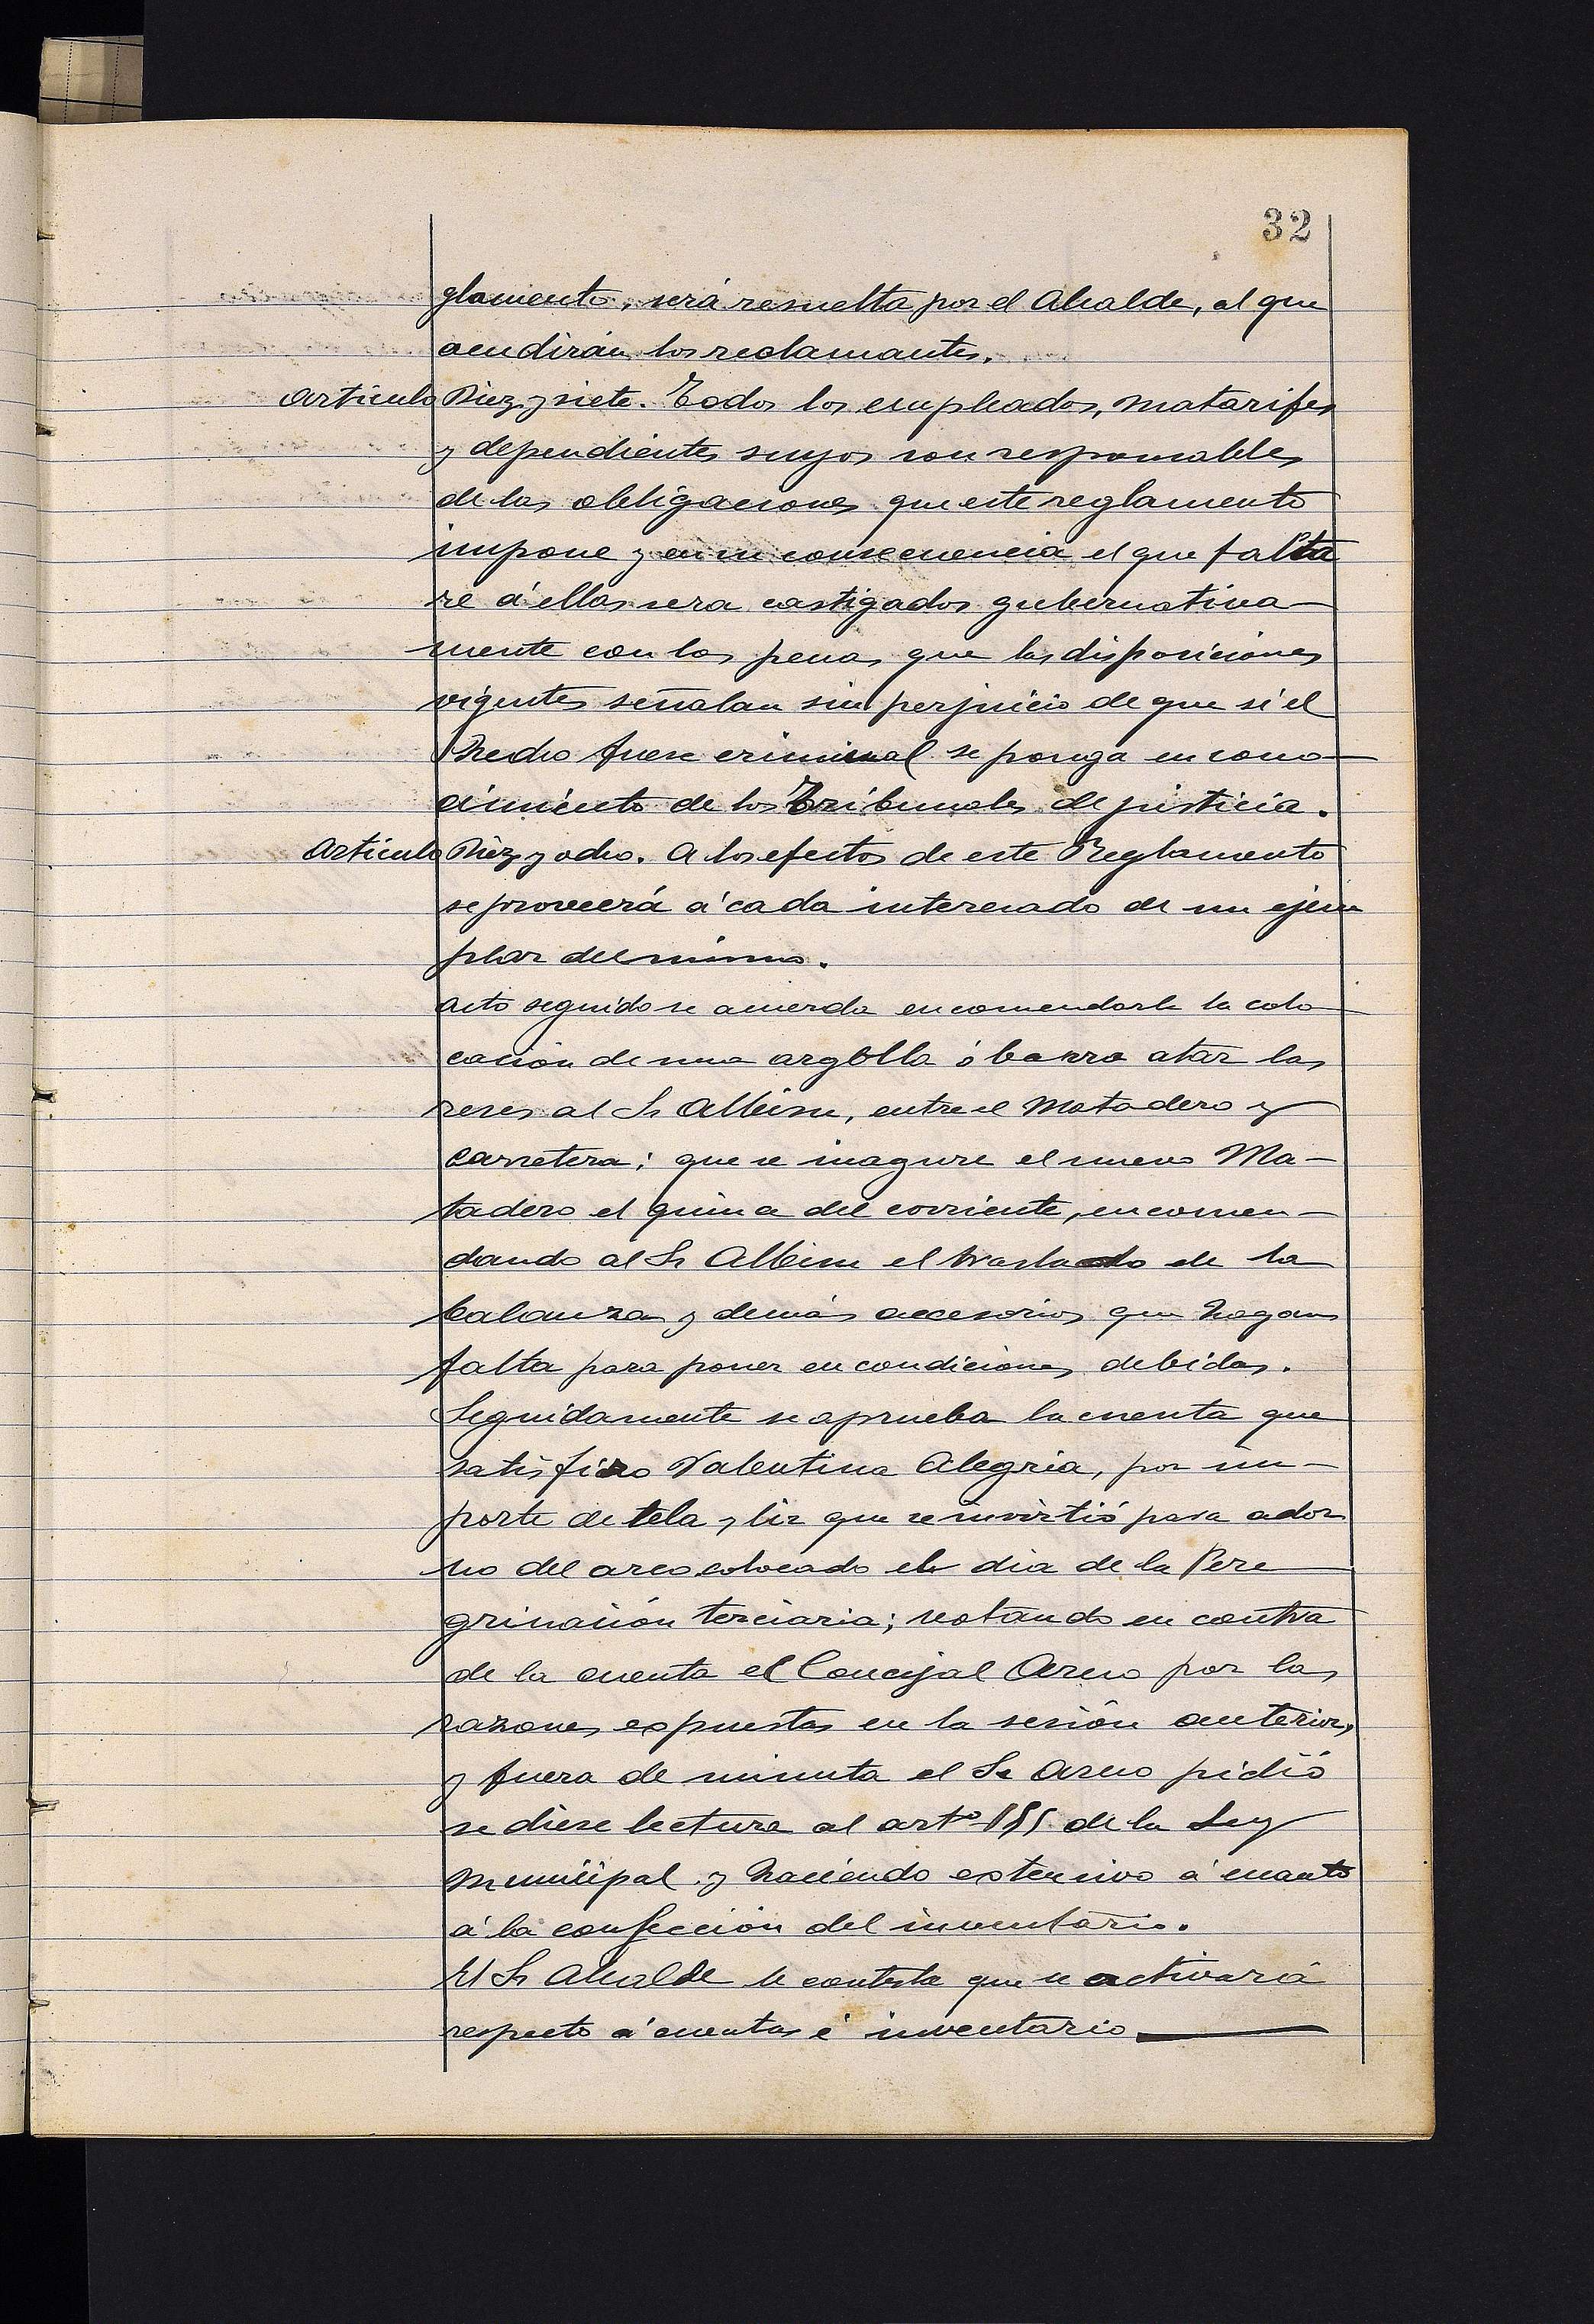 32
glamento, será resuelta por el Alcalde, al que
acudirán los reclamantes.
Artículo Diez y siete. Todos los empleados, matarifes
y dependientes suyos son responsables
de las obligaciones que este reglamento
impone y en su consecuencia el que falta
re á ellas sera castigados gubernativa-
mente con las penas que las disposiciones
vigentes señalan sin perjuicio de que si el
hecho fuese criminal se ponga en cono-
cimiento de los Tribunales de justicia.
Artículo Diez y ocho. A los efectos de este Reglamento
se proveerá á cada interesado de un ejem
plar del mismo.
Acto seguido se acuerda encomendarle la colo-
cación de una argolla ó barra atar las
reses al Sr Albisu, entre el Matadero y
carretera; que se inagure el nuevo Ma-
tadero el quince del corriente, encomen-
dando al Sr Albisu el traslado de la
balanza y demás accesorios que hagan
falta para poner en condiciones debidas.
Seguidamente se aprueba la cuenta que
satisfizo Valentina Alegria, por im-
porte de tela y que se invirtió para ador
no del arco colocado el dia de la Pere
grinación terciaria; votando en contra
de la cuenta el Concejal por las
razones expuestas en la sesión anterior,
y fuera de minuta el Sr pidió
se diese lectura al artº de la Ley
Municipal y haciendo extensivo á cuanto
á la confección del inventario.
El Sr Alcalde le contesta que se activará
respecto á cuentas é inventario